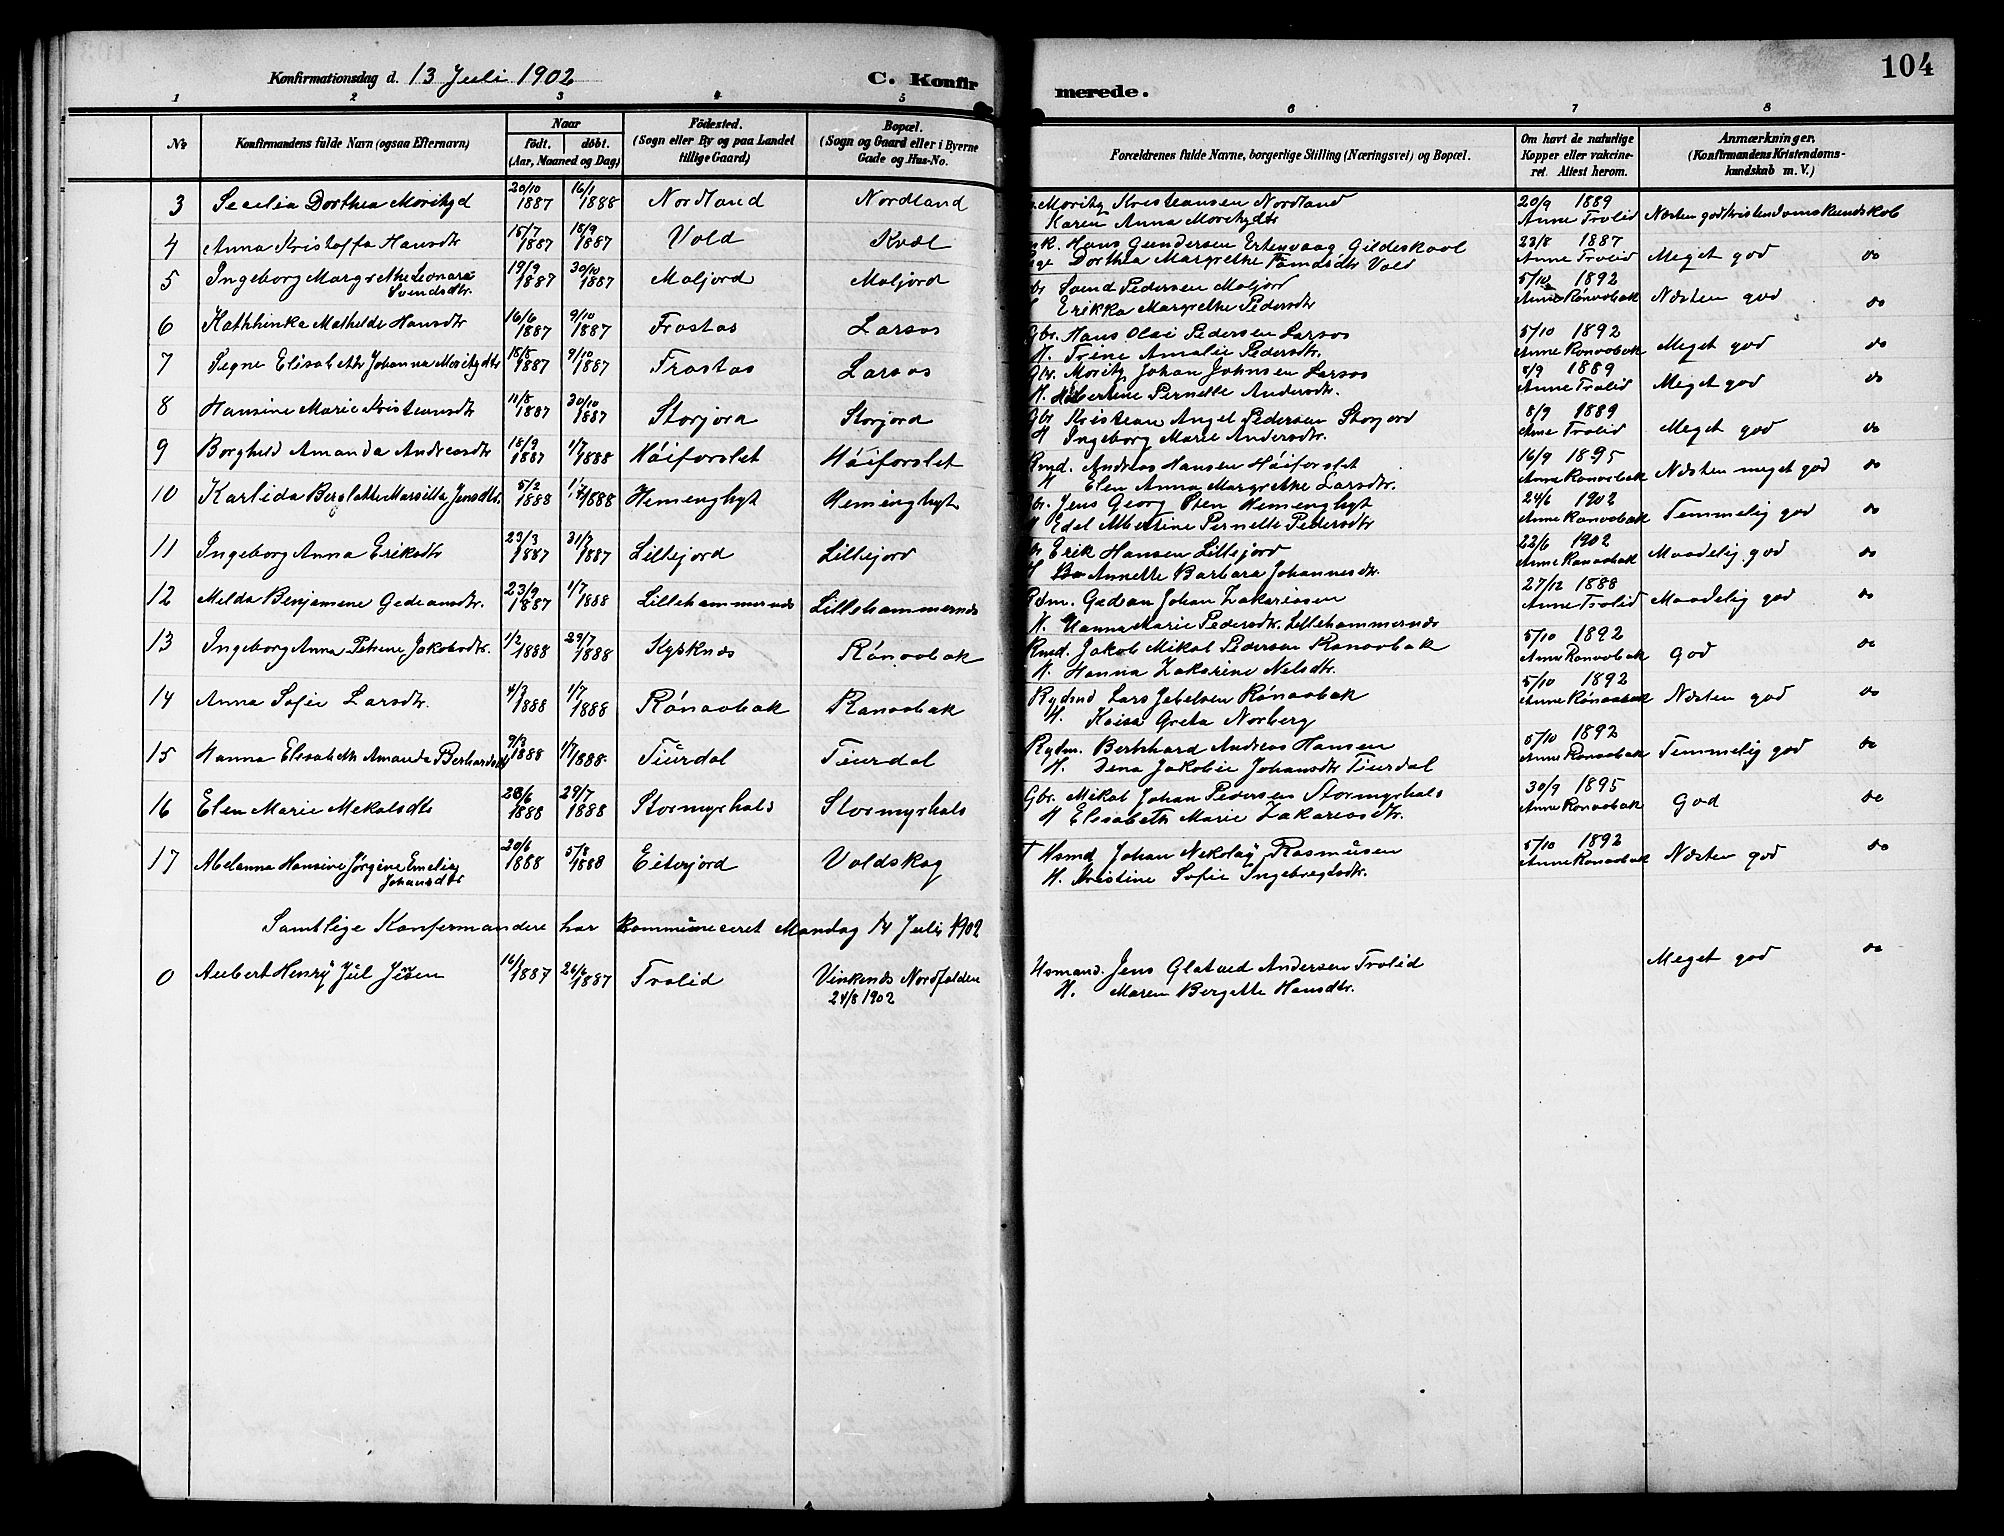 Konfirmationsdag d. 13 Juli 1902
C. Konfirmerede.
104
1 2 3 4 5 6 7 8
No
Konfirmandens fulde Navn (ogsaa Efternavn)
Naar
født. døbt.
(Aar, Maaned og Dag)
Födested.
(Sogn eller By og paa Landet
tillige Gaard)
Bopæl.
(Sogn og Gaard eller i Byerne
Gade og Hus-No.
Forældrenes fulde Navne, borgerlige Stilling (Næringsvei) og Bopæl.
Om havt de naturlige
Kopper eller vakcine-
ret. Attest herom.
Anmærkninger,
(Konfirmandens Kristendoms-
kundskab m. V.)
3 Secelia Dorthea Moritzd 20/10 1887 16/1 1888 Nordland Nordland Moritz Kristiansen Nordland 20/9 1889
Karen Anna Moritzdtr Anne Trolid Næsten god kristendomskundskab
4 Anna Kristoffa Hansdtr 15/7 1887 18/9 1887 Vold Kvæl Hans Gundersen Ertenvaag Gildeskaal 22/8 1887
Dorthea Margrethe Tomdsdtr Vold Anne Trolid Meget god do
5 Ingeborg Margrethe Leonara
Svendsdtr. 19/9 1887 30/10 1887 Moljord Moljord Svend Pedersen Moljord 5/10 1892
Erikka Margrethe Pedersdtr Anne Rønaabak Næsten god do
6 Kathinka Mathilde Hansdtr 16/6 1887 9/10 1887 Frostas Larsos Gbr. Hans Olai Pedersen Larsos 5/10 1892
H. Trine Amalie Pedersdtr. Anne Ronaabak Meget god do
7 Signe Elisabeth Johanna Moritzdtr 18/8 1887 9/10 1887 Frostas Larsos Gbr. Moritz Johan Johnsen Larsos 5/9 1889
H. Albertine Pernelle Andersdtr. Anne Trolid Meget god do
8 Hansine Marie Kristiansdtr 11/8 1887 30/10 1887 Storjord Storjord Gbr Kristian Angel Pedersen Storjord 8/9 1889
H Ingeborg Marie Andersdtr. Anne Trolid Meget god do
9 Borghild Amanda Andreasdtr 18/9 1887 1/7 1888 Høiforslet Høiforslet Rmd. Andreas Hansen Høiforslet 16/9 1895
H Elen Anna Margrethe Larsdtr. Anne Ronaabak Næsten meget god do
10 Karlida Berglatte Marsilla Jensdtr. 5/2 1888 1/7 1888 Hemenghyt Hemenghyt Jens Georg Sten Hemenghyt 24/6 1902
H Edel Albertine Pernelle Pedersdtr Anne Ronaabak Temmelig god do
11 Ingeborg Anna Eriksdtr 23/3 1887 31/7 1887 Lillejord Lillejord Erik Hansen Lillejord 22/6 1902
H Annette Barbara Johannesdtr. Anne Ronaabak Maadelig god do
12 Melda Benjamene Gedeansdtr. 23/9 1887 1/7 1888 Lillehammernes Lillehammernes Rdm. Gedean Johan Zakariasen 27/12 1888
H. Hanna Marie Pedersdtr. Lillehammernes Anne Trolid Maadelig god do
13 Ingeborg Anna Petrine Jakobsdtr. 1/2 1888 29/7 1888 Kysknes Rónaabak Rmd. Jakob Mikal Pedersen Ronaabak 5/10 1892
H. Hanna Zakarine Nelsdtr. Anne Ronaabak God do
14 Anna Sofie Larsdtr. 4/3 1888 1/7 1888 Rónaabak Ranaabak Rydmd Lars Jebelsen Rónaabak 5/10 1892
H. Kaisa Greta Norberg Anne Rónaabak Næsten god do
15 Hanna Elisabeth Amanda Berhardsdtr 9/3 1888 1/7 1888 Tiurdal Tiurdal Rydm. Bernhard Andreas Hansen 5/10 1892
H. Dina Jakobie Johansdtr Tiurdal Anne Ronaabak Temmelig god do
16 Elen Marie Mekalsdtr 28/6 1888 29/7 1888 Stormyrhals Stormyrhals Gbr. Mikal Johan Pedersen Stormyrhals 30/9 1895
H Elisabeth Marie Zakariasdtr. Anne Ronaabak God do
17 Abelanna Hansine Jørgine Emelie
Johansdtr 20/6 1888 5/8 1888 Eiterjord Voldskag Hsmd Johan Nekolay Rasmusen 5/10 1892
H. Kristine Sofie Ingebregtsdtr. Anne Ronaabak Næsten god do
Samtlige Konfermandere har kommuneceret Mandag 14 Juli 1902
0 Aubert Henry Jul Jesen 16/1 1887 26/6 1887 Trolid Vinkenes Nordfolden
24/8 1902
Hsmand. Jens Glatved Andersen Trolid Meget god do
H. Maren Bergette Hansdtr.